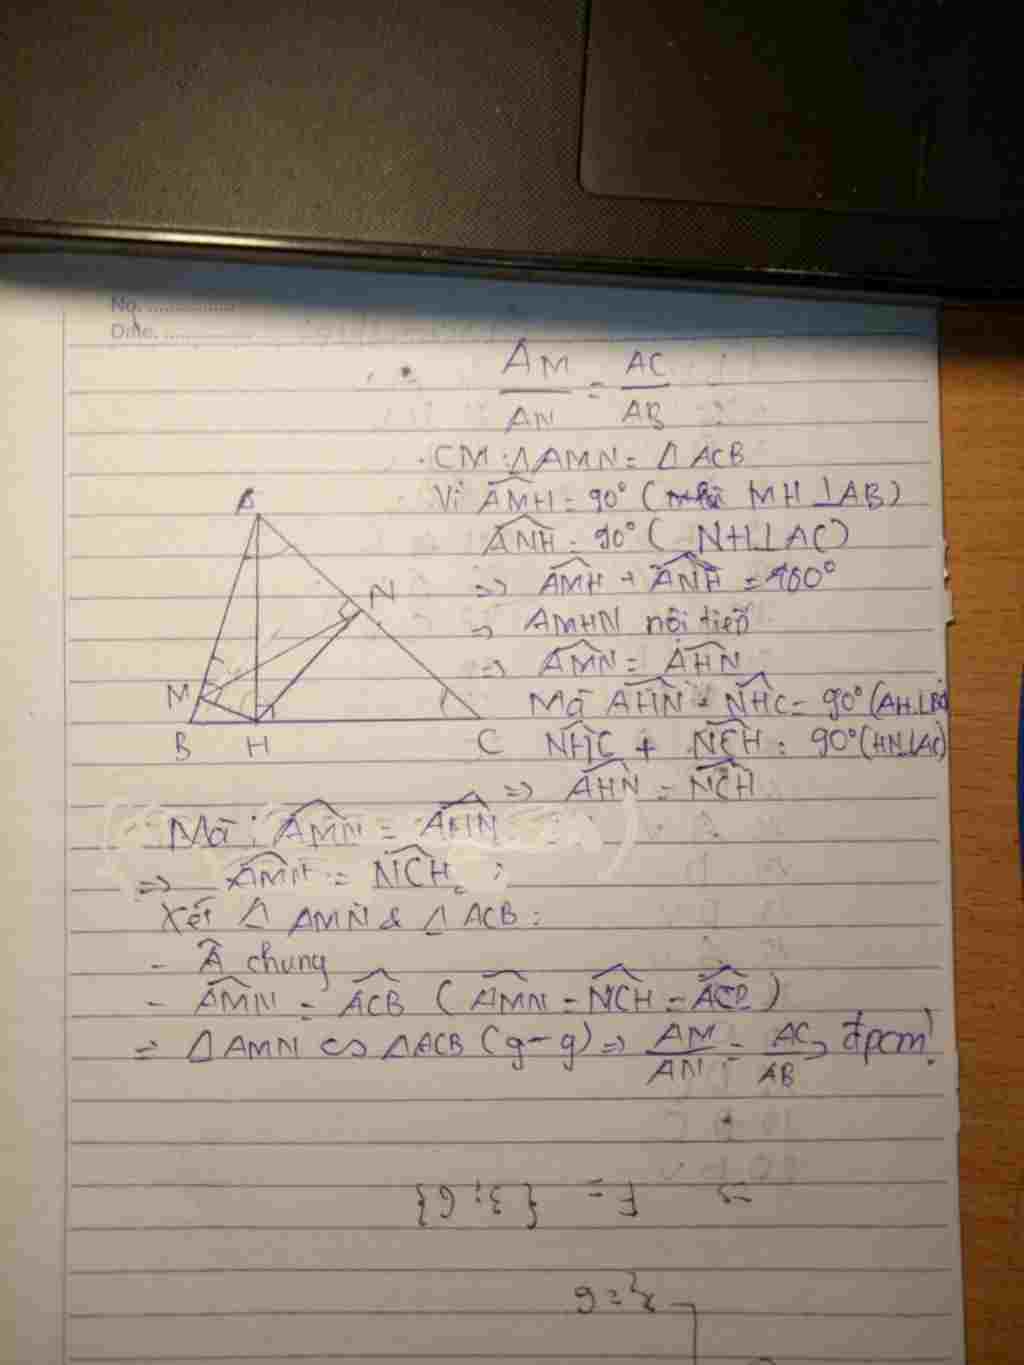 No. ................
Date. ................
AM/AN = AC/AB
CM: Δ AMN = Δ ACB
Vì AMH = 90° ( MH ⊥ AB)
ANH = 90° ( NH ⊥ AC)
=> AMH + ANH = 180°
=> AMHN nội tiếp
=> AMN = AHN
A
N
M
B H C
Mà AHN + NHC = 90° (AH⊥BC)
NHC + NCH = 90° (HN⊥AC)
=> AHN = NCH
Mà: AMN = AHN
=> AMN = NCH
Xét Δ AMN & Δ ACB:
- Â chung
- AMN = ACB ( AMN = NCH = ACB )
=> Δ AMN ∽ Δ ACB (g-g) => AM/AN = AC/AB, đpcm!
=> F = {3; 6}
= 6